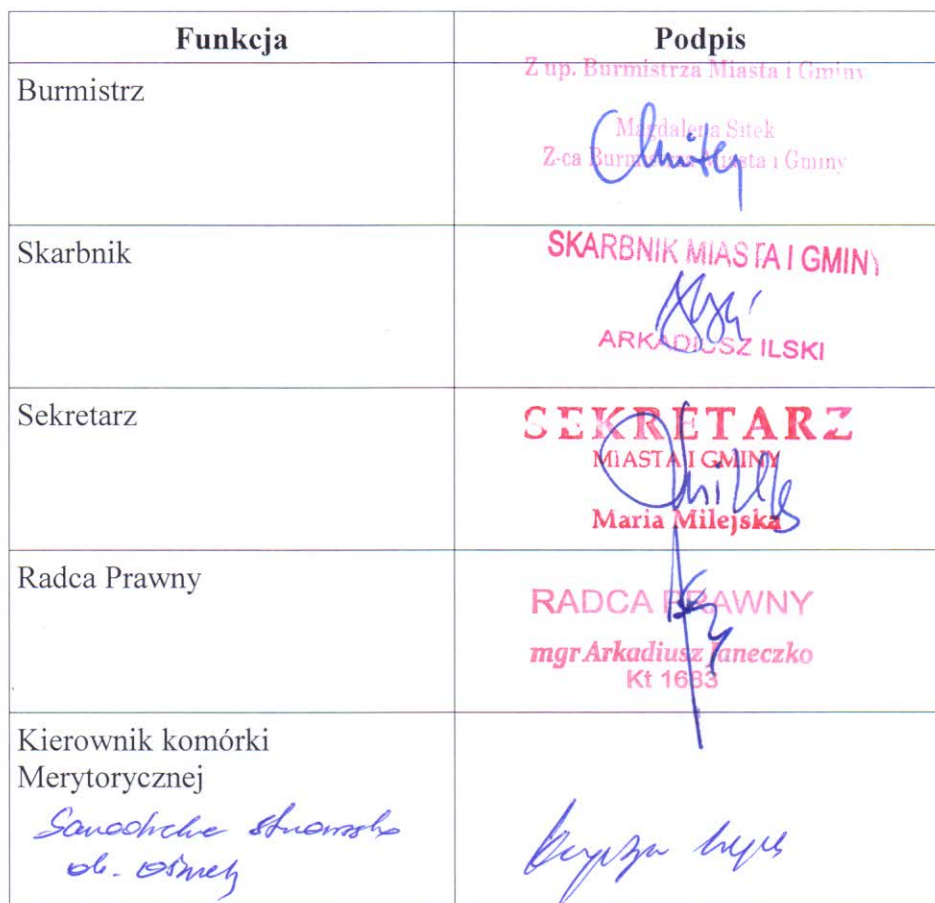 Funkcja
Podpis
Burmistrz
Z up. Burmistrza Miasta i Gminy
Magdalena Sitek
Z-ca Burmistrza Miasta i Gminy
Skarbnik
SKARBNIK MIASTA I GMINY
ARKADIUSZ ILSKI
Sekretarz
SEKRETARZ
MIASTA I GMINY
Maria Milejska
Radca Prawny
RADCA PRAWNY
mgr Arkadiusz Janeczko
Kt 1683
Kierownik komórki
Merytorycznej